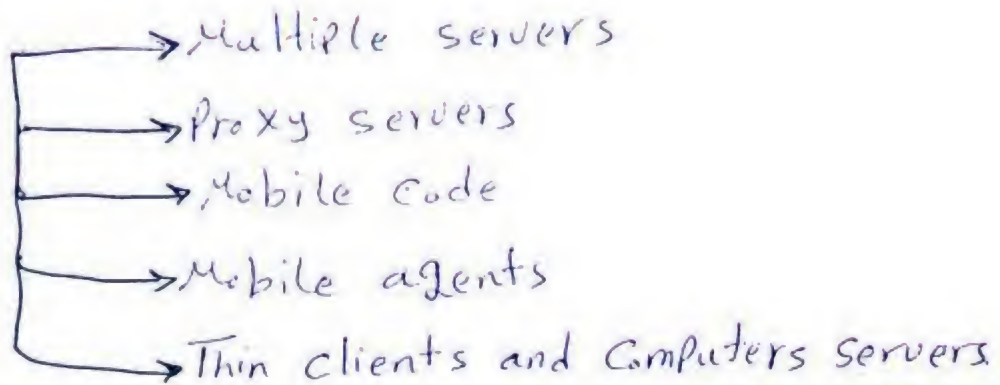 Multiple servers
Proxy servers
Mobile code
Mobile agents
Thin clients and Computers servers